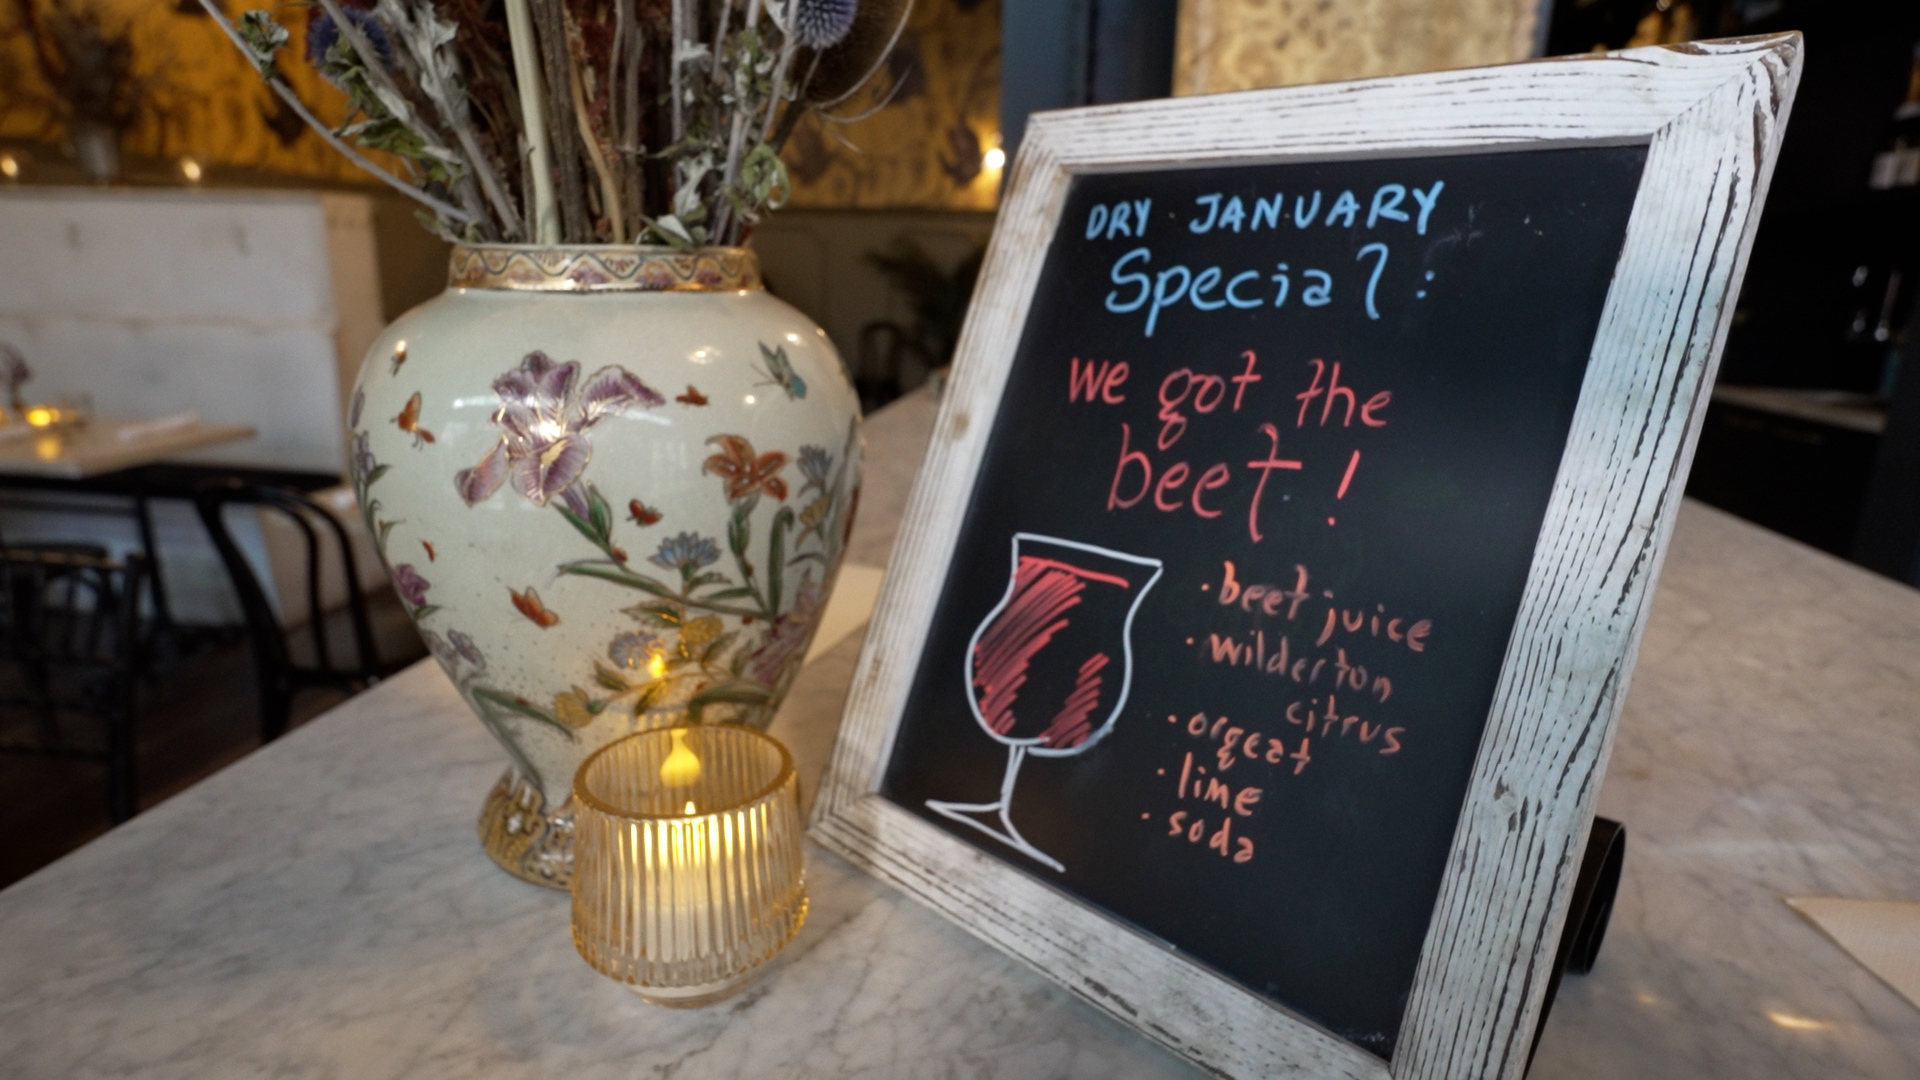 DRY JANUARY
Special:
we got the
beet!
· beet juice
· wilderton
citrus
· orgeat
· lime
· soda